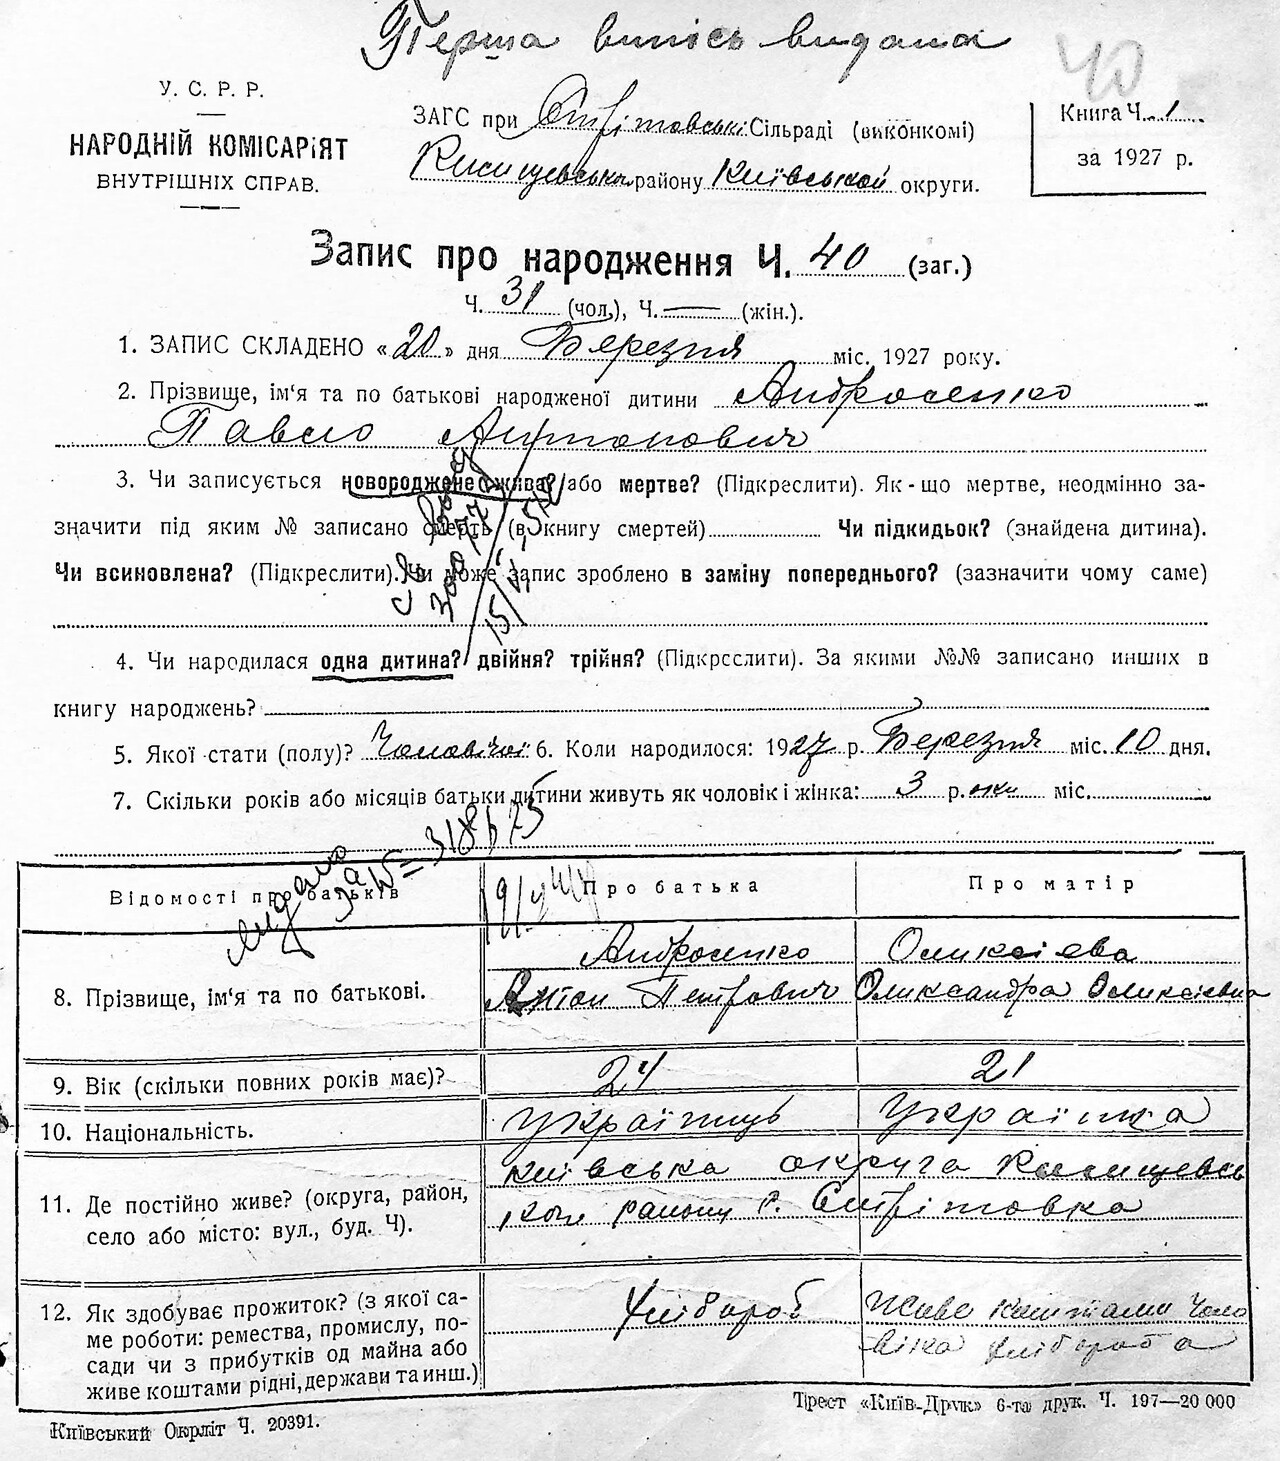 Перша випись видана
40
У. С. Р. Р.
НАРОДНІЙ КОМІСАРІЯТ
ВНУТРІШНІХ СПРАВ.
ЗАГС при Стрітовські Сільраді (виконкомі)
району Київської округи.
Книга Ч. 1
за 1927 р.
Запис про народження Ч. 40 (заг.)
Ч. 31 (чол.), Ч. — (жін.).
1. ЗАПИС СКЛАДЕНО «20» дня Березня міс. 1927 року.
2. Прізвище, ім'я та по батькові народженої дитини Андросенко
Павло Антонович
3. Чи записується новороджене живе? або мертве? (Підкреслити). Як-що мертве, неодмінно за-
значити під яким № записано смерть (в книгу смертей) Чи підкидьок? (знайдена дитина).
Чи всиновлена? (Підкреслити). Чи може запис зроблено в заміну попереднього? (зазначити чому саме)
4. Чи народилася одна дитина? двійня? трійня? (Підкреслити). За якими №№ записано инших в
книгу народжень?
5. Якої стати (полу)? Чоловічої 6. Коли народилося: 1927 р. Березня міс. 10 дня.
7. Скільки років або місяців батьки дитини живуть як чоловік і жінка: 3 р. міс.
видано
за № 318673
Відомості про батьків
Про батька
Про матір
8. Прізвище, ім'я та по батькові.
Андросенко
Антон Петрович
Оликсієва
Олександра Оликсієвна
9. Вік (скільки повних років має)?
24
21
10. Національність.
Українець
Українка
11. Де постійно живе? (округа, район,
село або місто: вул., буд. Ч).
Київська округа
району с. Стрітовка
12. Як здобуває прожиток? (з якої са-
ме роботи: ремества, промислу, по-
сади чи з прибутків од майна або
живе коштами рідні, держави та инш.)
Хлібороб
Живе коштами чоло
віка хлібороба
Київський Окрліт Ч. 20391.
Трест «Київ-Друк» 6-та друк. Ч. 197—20 000